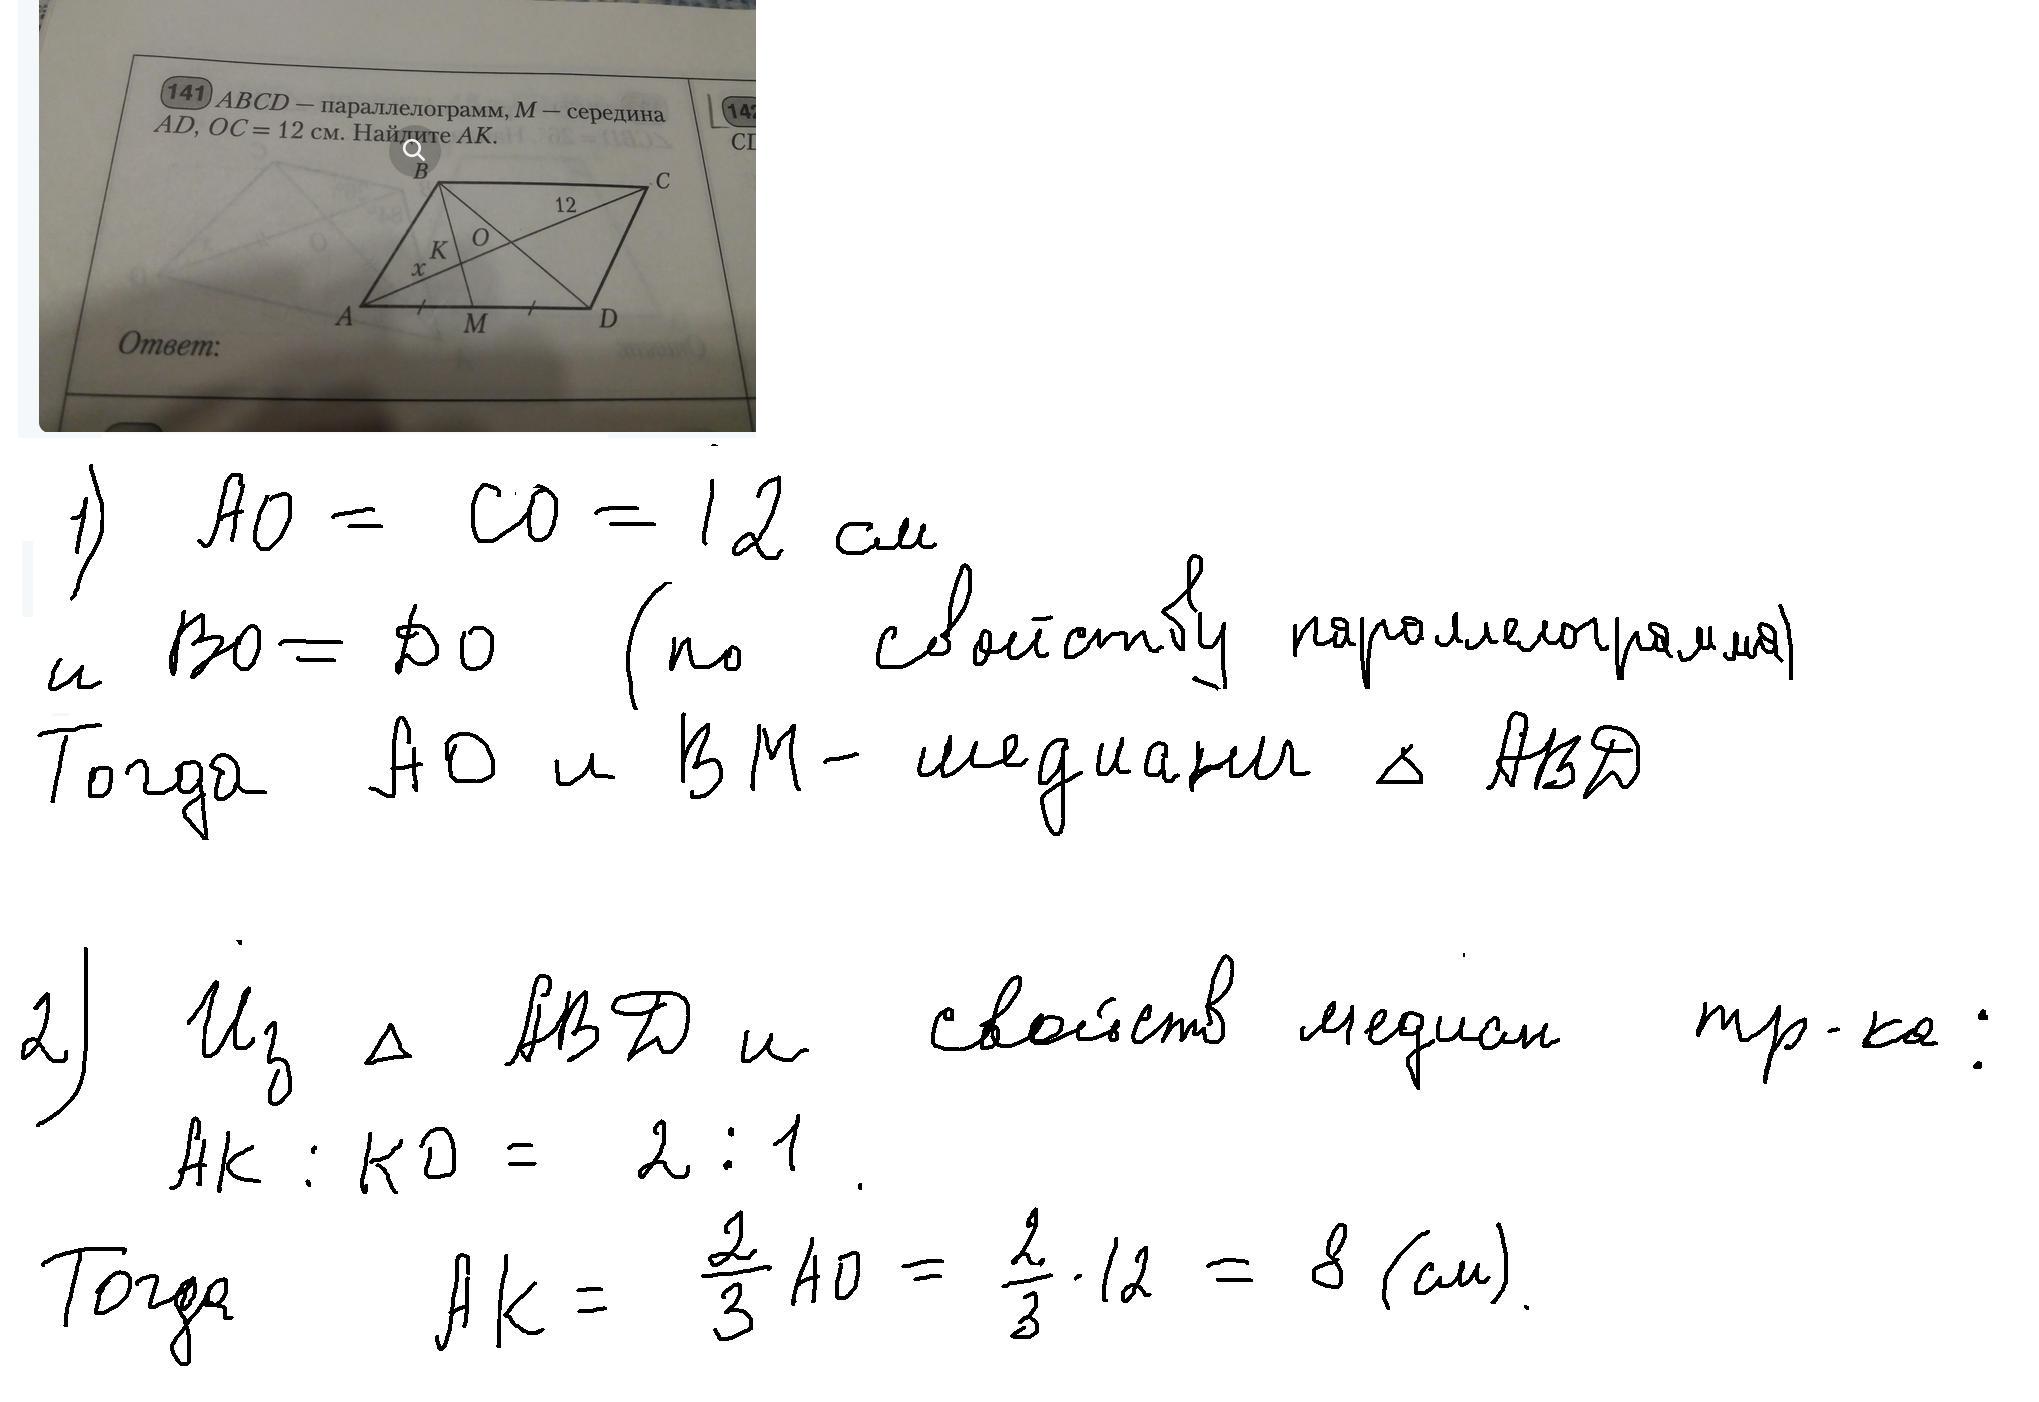 141 ABCD — параллелограмм, M — середина
AD, OC = 12 см. Найдите AK.
142
CD
B
C
12
O
K
x
A
M
D
Ответ:
1) AO = CO = 12 см
и BO = DO (по свойству параллелограмма)
Тогда AO и BM – медианы △ ABD
2) Из △ ABD и свойств медиан тр-ка:
AK : KO = 2 : 1.
Тогда AK = 2/3 AO = 2/3 · 12 = 8 (см).